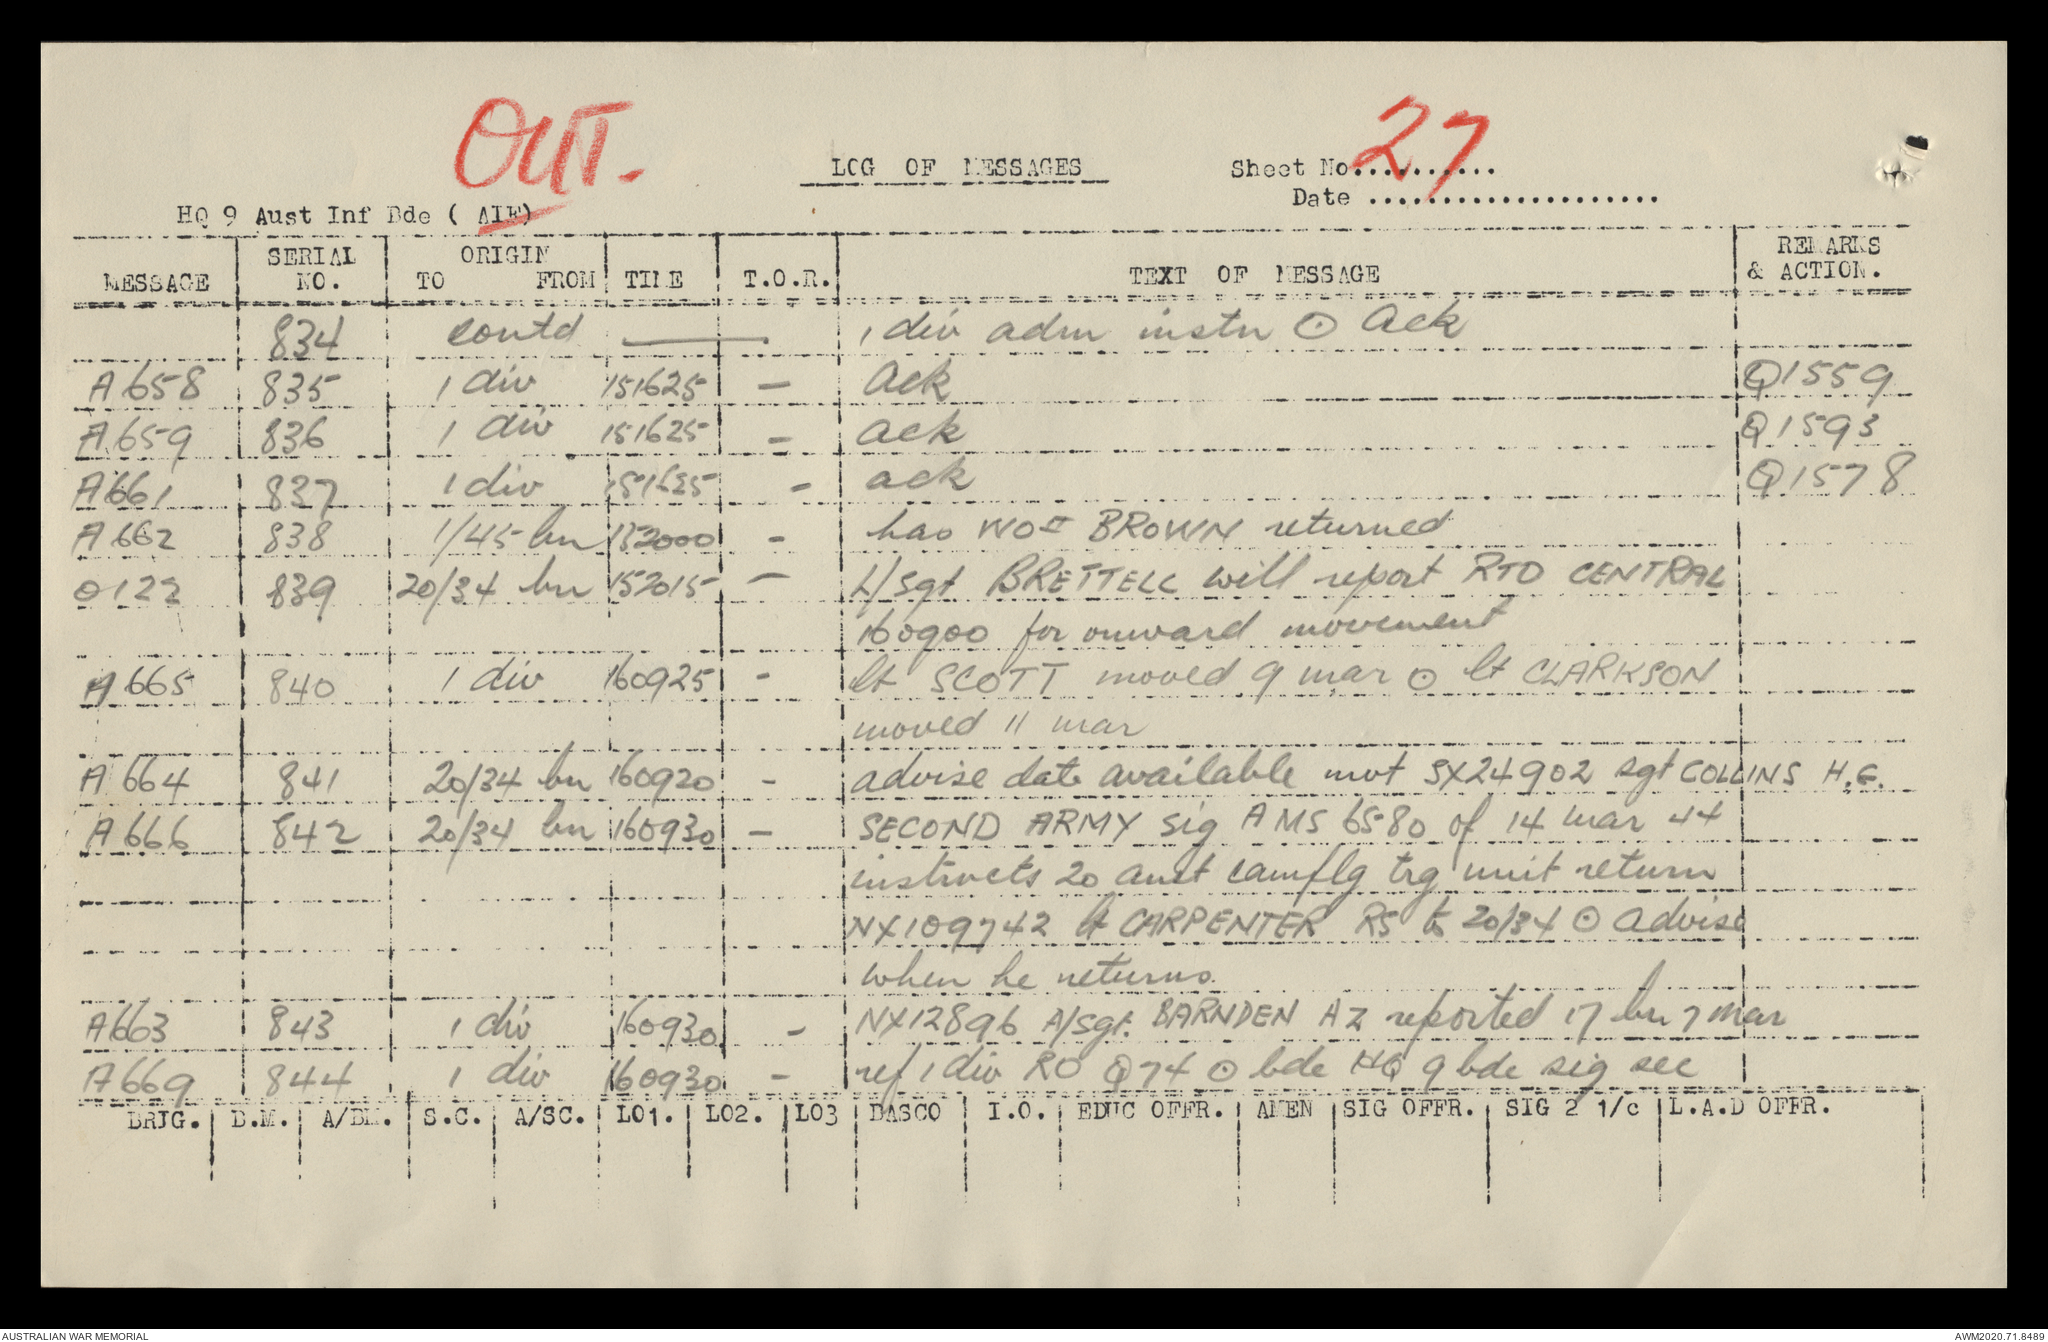 OUT.
LOG OF MESSAGES
Sheet No........... 27
Date ....................
HQ 9 Aust Inf Bde ( AIF)
MESSAGE SERIAL NO. ORIGIN TO FROM TIME T.O.R. TEXT OF MESSAGE REMARKS & ACTION.
834 contd — 1 div adm instn ⊙ Ack
A658 835 1 div 151625 — Ack Q1559
A659 836 1 div 151625 - ack Q1593
A661 837 1 div 151625 - ack Q1578
A662 838 1/45 bn 152000 - has WO II BROWN returned
O122 839 20/34 bn 152015 — L/Sgt BRETTELL will report RTO CENTRAL
160900 for onward movement
A665 840 1 div 160925 - lt SCOTT moved 9 mar ⊙ lt CLARKSON
moved 11 mar
A664 841 20/34 bn 160920 - advise date available mvt SX24902 sgt COLLINS H.G.
A666 842 20/34 bn 160930 — SECOND ARMY sig AMS 6580 of 14 mar 44
instructs 20 aust camflg trg unit return
NX109742 lt CARPENTER RS to 20/34 ⊙ advise
when he returns.
A663 843 1 div 160930 - NX12896 A/Sgt. BARNDEN AZ reported 17 bn 7 mar
A669 844 1 div 160930 - ref 1 div RO Q74 ⊙ bde HQ 9 bde sig sec
BRIG. B.M. A/BM. S.C. A/SC. LO1. LO2. LO3 BASCO I.O. EDUC OFFR. AMEN SIG OFFR. SIG 2 1/c L.A.D OFFR.
AUSTRALIAN WAR MEMORIAL
AWM2020.71.8489